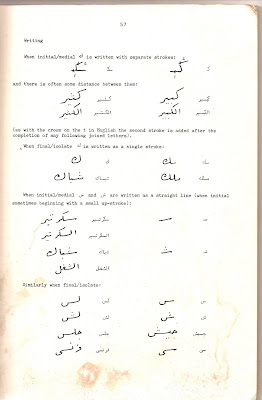 57
Writing
When initial/medial ك is written with separate strokes:
and there is often some distance between them:
كثير كثير كبير كبير
الكثير الكثير الكبير الكبير
(as with the cross on the t in English the second stroke is added after the
completion of any following joined letters).
When final/isolate ك is written as a single stroke:
ك ك
شباك شباك ملك ملك
When initial/medial س and ش are written as a straight line (when initial
sometimes beginning with a small up-stroke):
سكرتير سكرتير س
السكرتير السكرتير
شباك شباك ش
الشغل الشغل
Similarly when final/isolate:
س س
ش ش
جلس جلس جيش جيش